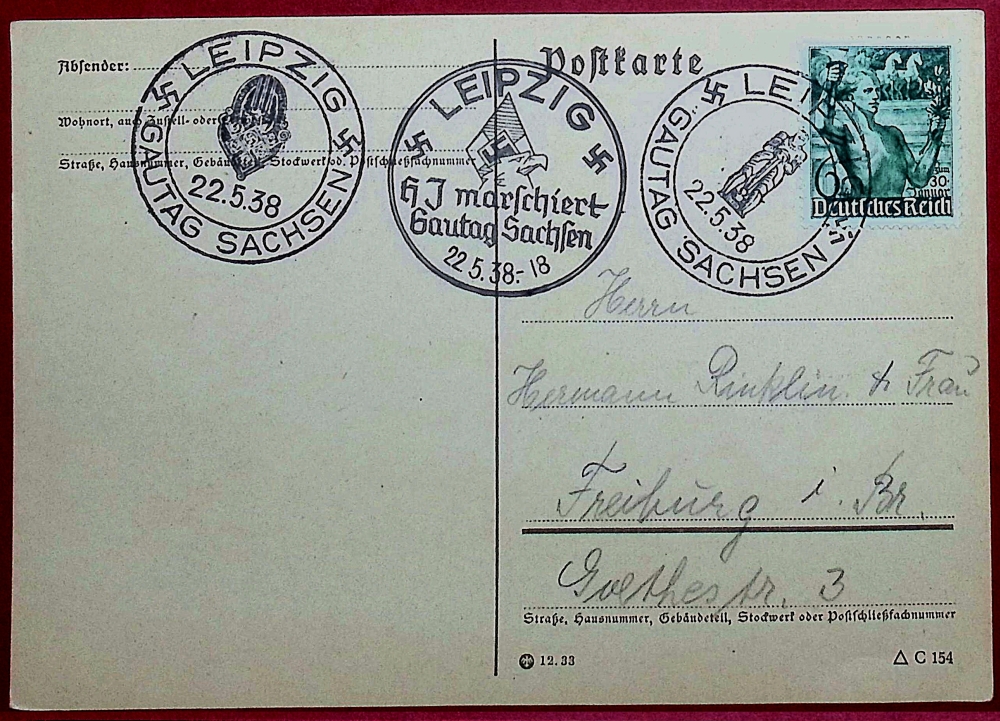 Postkarte
Absender:
Wohnort, auch Zustell- oder
Straße, Hausnummer, Gebäudeteil, Stockwerk od. Postschließfachnummer
LEIPZIG
22.5.38
GAUTAG SACHSEN
LEIPZIG
HJ marschiert
Gautag Sachsen
22.5.38.-18
LEI
22.5.38
GAUTAG SACHSEN
6
zum
30.
Januar
Deutsches Reich
Herrn
Hermann Rinklin & Frau
Freiburg i. Br.
Goethestr. 3
Straße, Hausnummer, Gebäudeteil, Stockwerk oder Postschließfachnummer
12.33
C 154